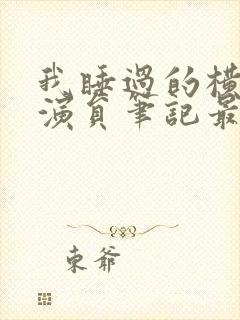 我睡過的橫
演員筆記最
東爺